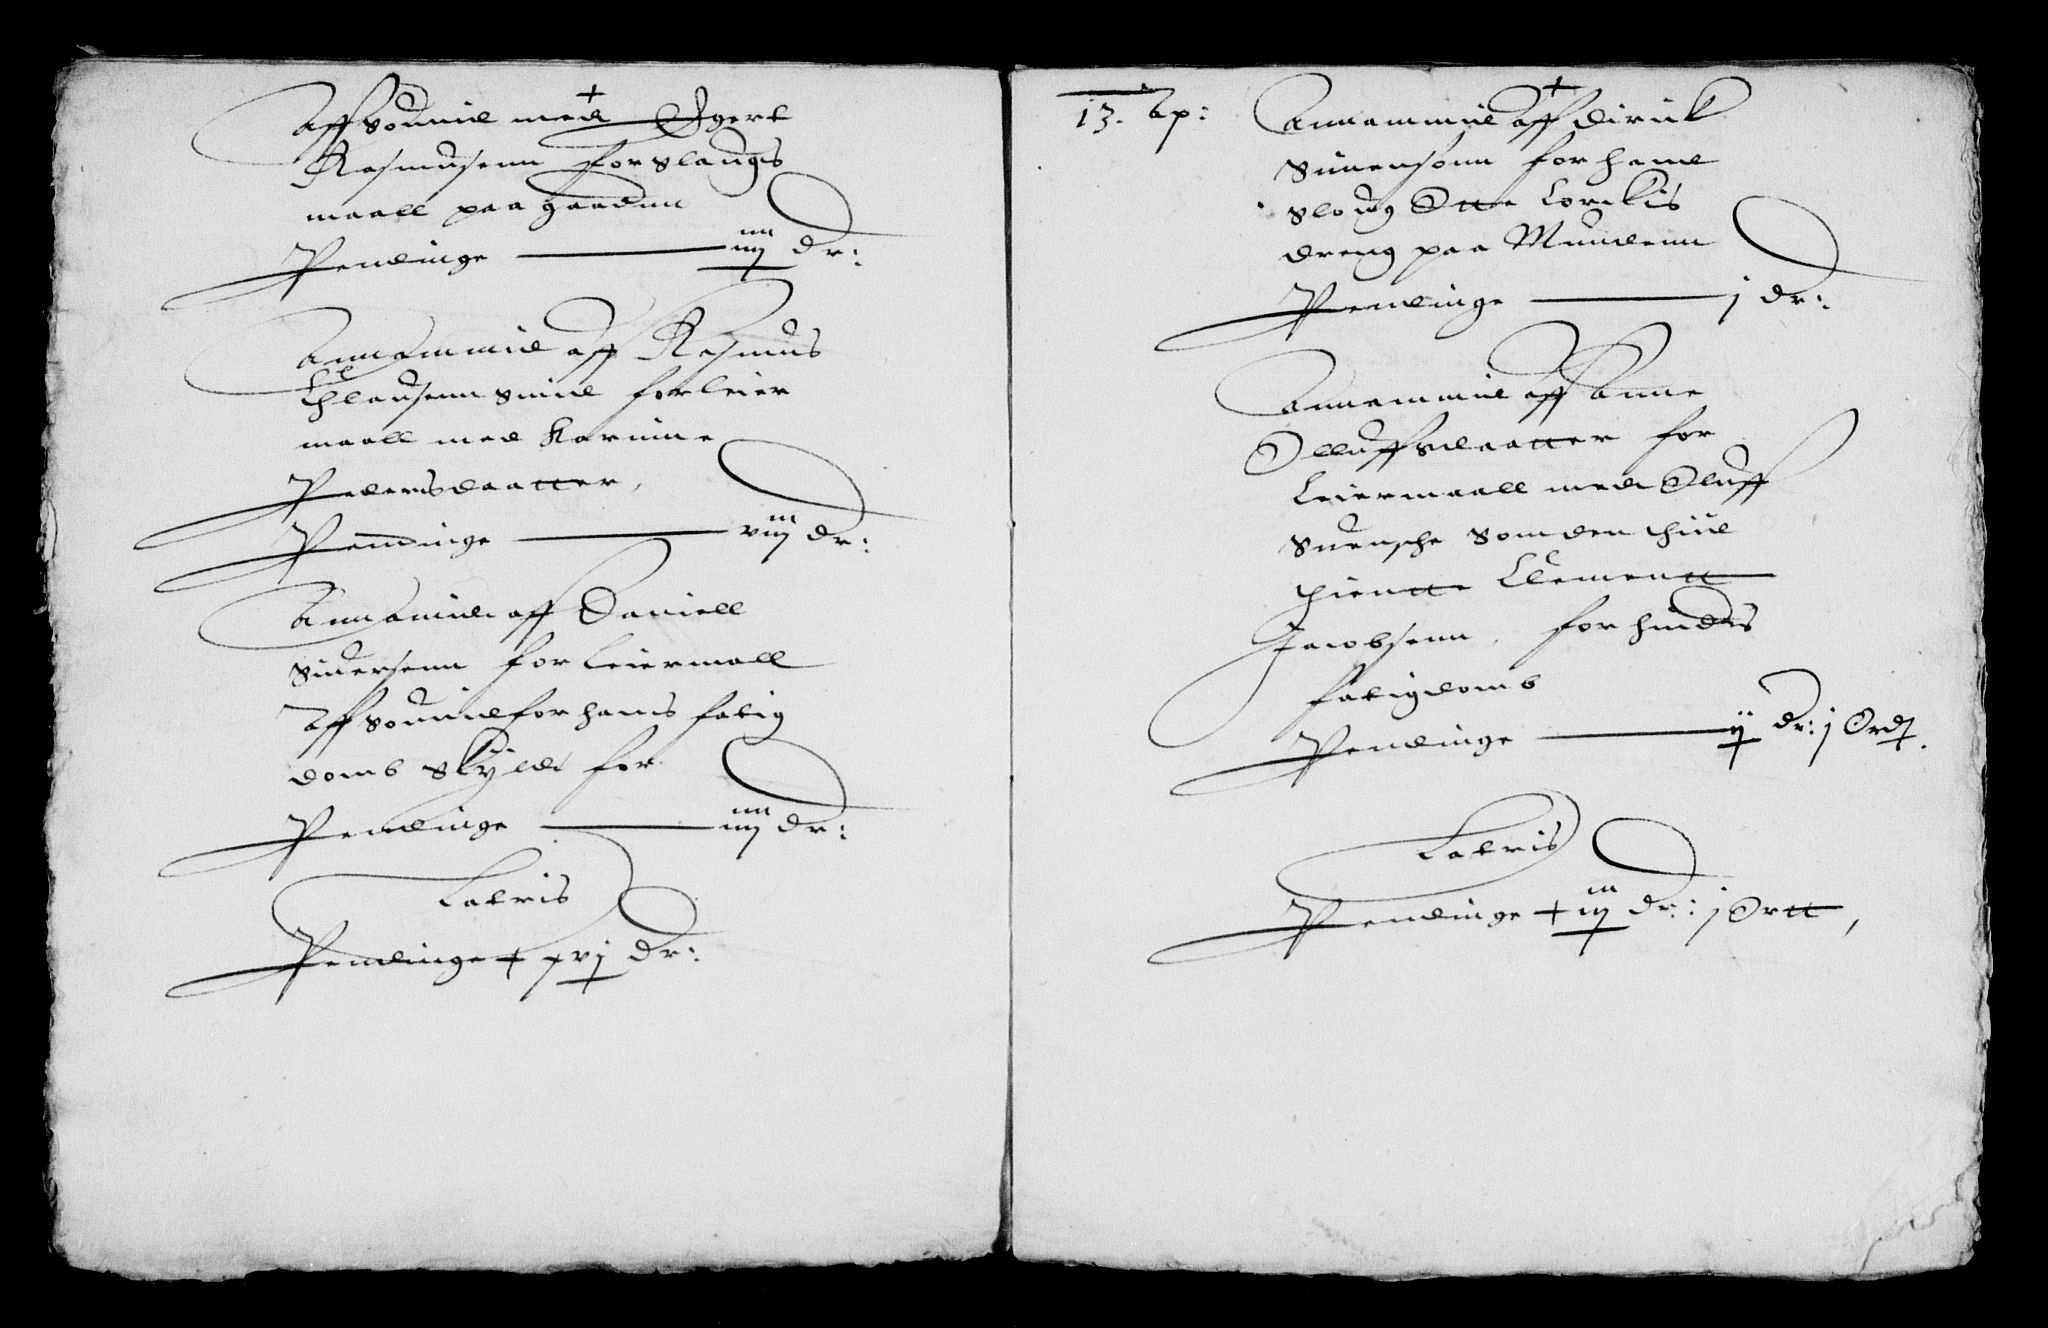 Affsonnid med Egert
Rasmusenn for slaugs
maall paa gaadenn
Pendinge — iiij dr:
Annammid aff Rasmus
Clausenn Smid for leier
maall med Karinne
Pedersdaatter,
Pendinge — viij dr:
Annamid aff Daniell
Siuersenn for Leiermall
Affsonnid for hans fatig
domb skyld for
Pendinge — iiij dr:
Lateris
Pendinge + xvj dr:
13. Ap: Annammid aff Dirick
Suuensonn for hand
sloug Otte Lorckis
dreng paa Mundenn
Pendinge — j dr:
Annammid aff Anne
Olluffsdaatter for
Leiermaall med Oluff
Suensche som den thiid
thientte Clementt
Jacobsenn, for hindis
fatigdomb
Pendinge — ij dr: j Ordt.
Lateris
Pendinge + iij dr: j Ortt,